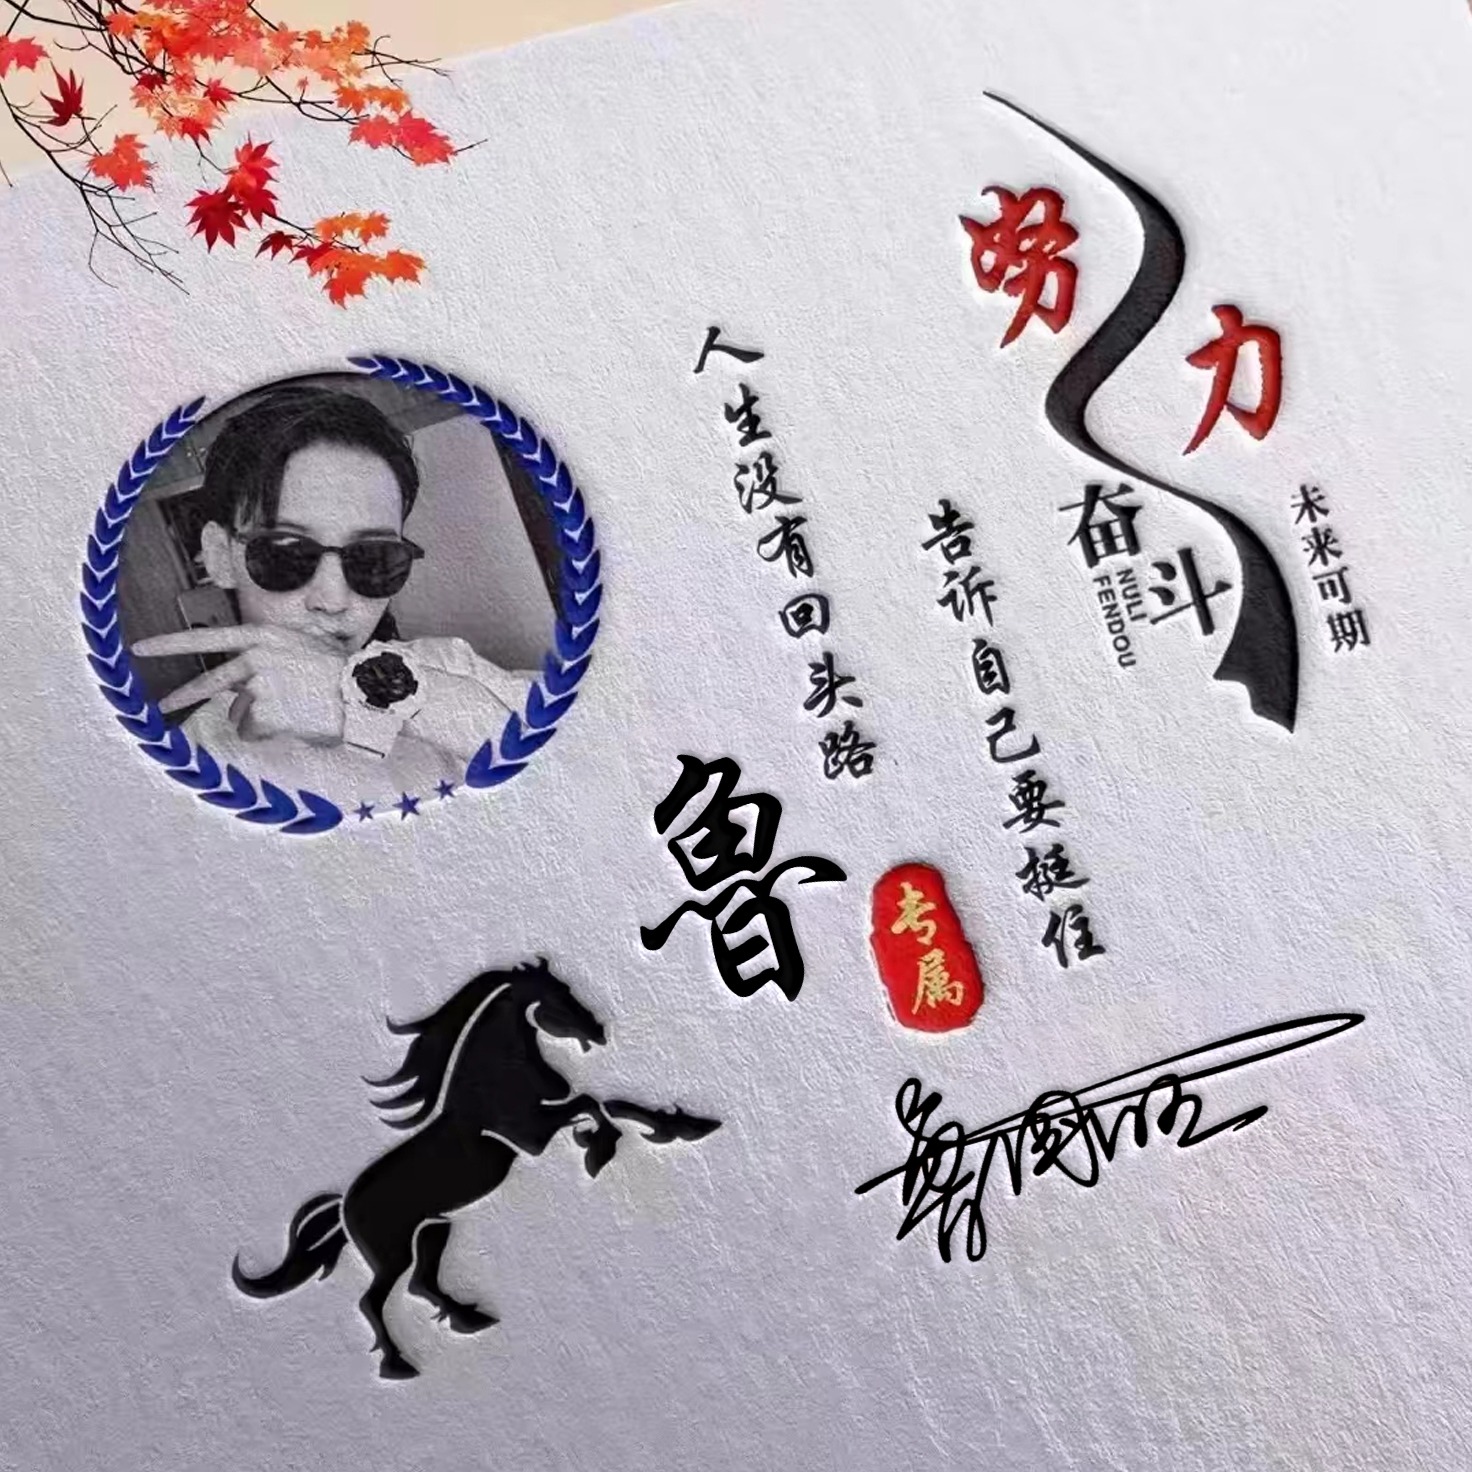 努力
奋斗
NULI
FENDOU
未来可期
人生没有回头路
告诉自己要挺住
鲁
专属